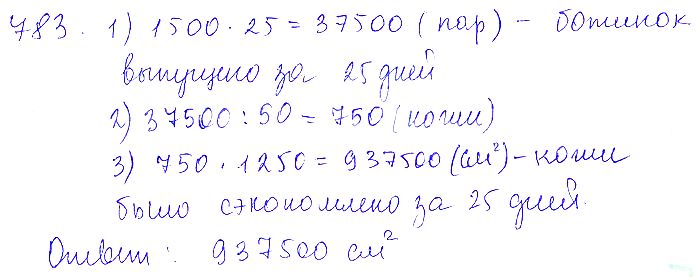 783. 1) 1500 · 25 = 37500 (пар) - ботинок
выпущено за 25 дней
2) 37500 : 50 = 750 (кожи)
3) 750 · 1250 = 937500 (см²) - кожи
было сэкономлено за 25 дней.
Ответ: 937500 см²